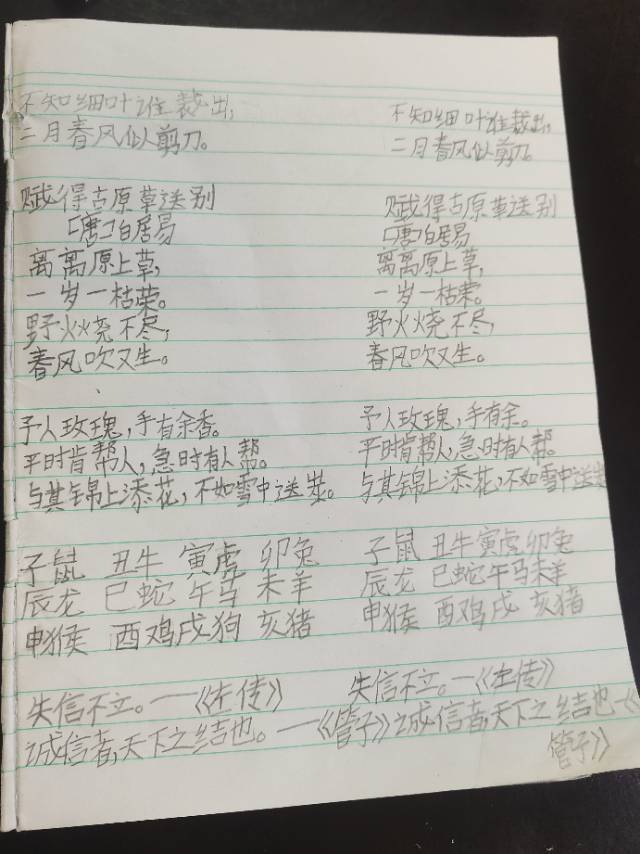 不知细叶谁裁出,
二月春风似剪刀。
赋得古原草送别
[唐]白居易
离离原上草,
一岁一枯荣。
野火烧不尽,
春风吹又生。
予人玫瑰,手有余香。
平时肯帮人,急时有人帮。
与其锦上添花,不如雪中送炭。
子鼠 丑牛 寅虎 卯兔
辰龙 巳蛇 午马 未羊
申猴 酉鸡戌狗 亥猪
失信不立。——《左传》
诚信者,天下之结也。——《管子》
不知细叶谁裁出,
二月春风似剪刀。
赋得古原草送别
[唐]白居易
离离原上草,
一岁一枯荣。
野火烧不尽,
春风吹又生。
予人玫瑰,手有余。
平时肯帮人,急时有人帮。
与其锦上添花,不如雪中送炭
子鼠 丑牛寅虎卯兔
辰龙 巳蛇午马未羊
申猴 酉鸡戌狗 亥猪
失信不立。—《左传》
诚信者,天下之结也—《
管子》